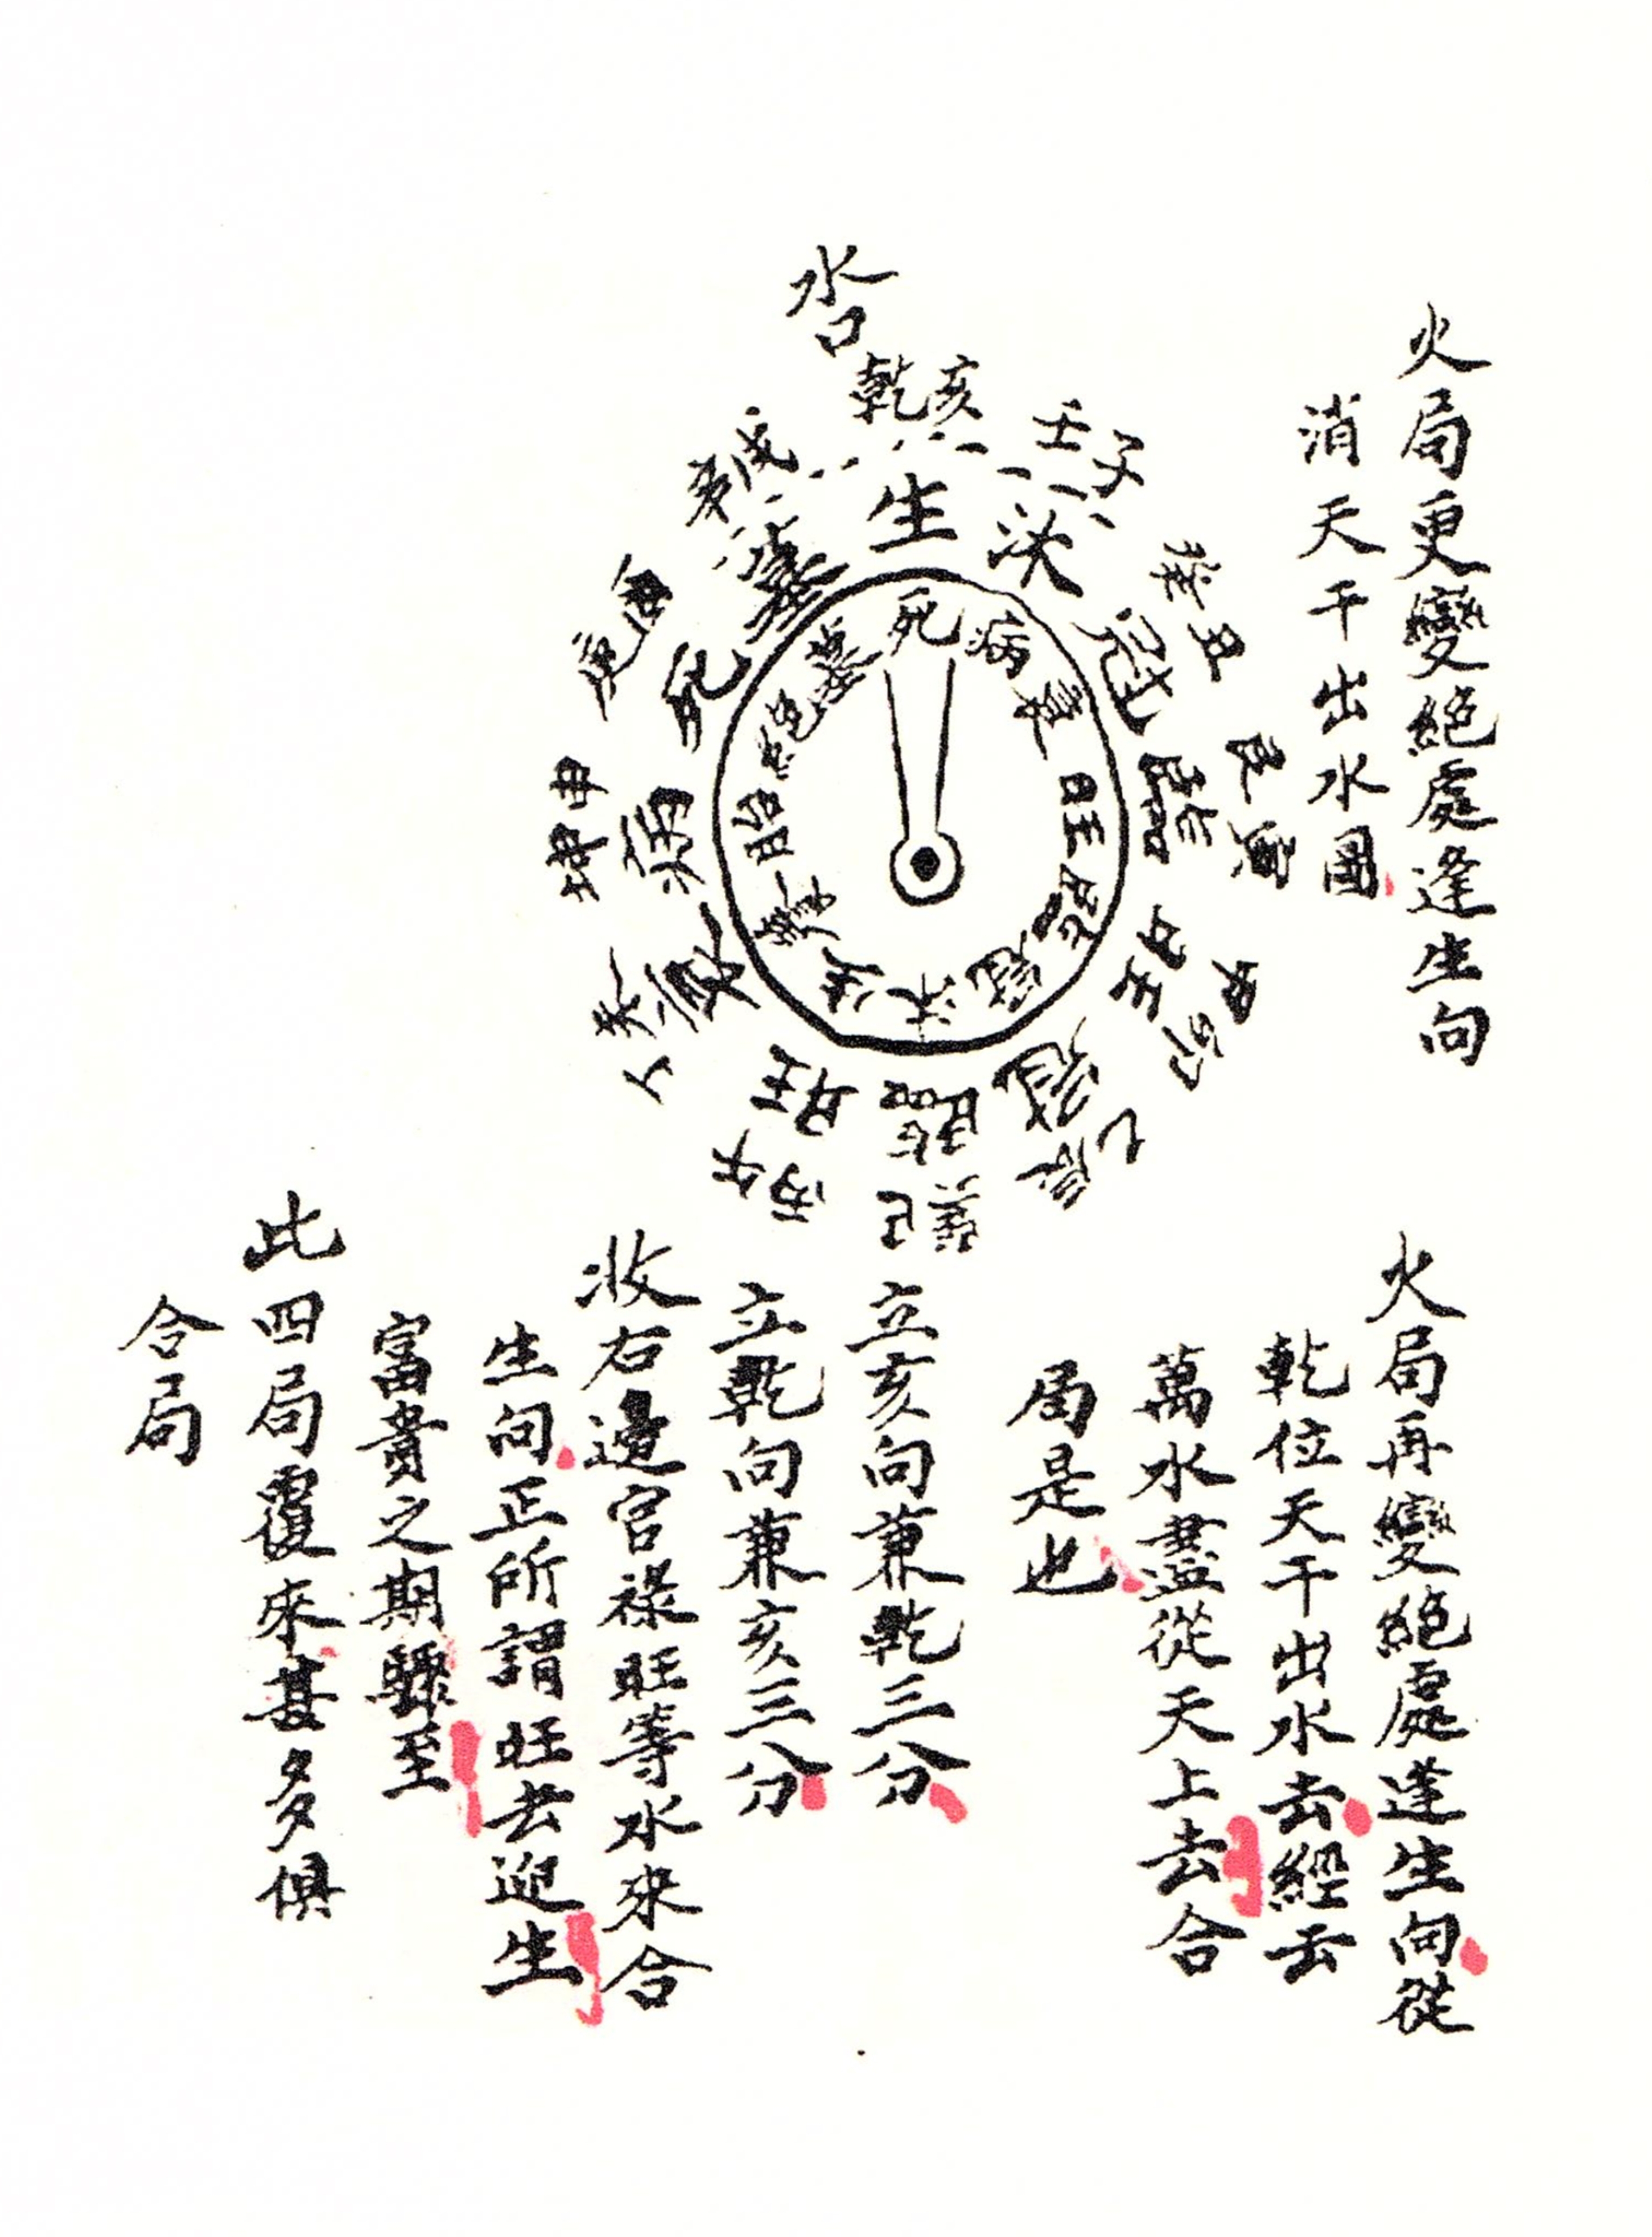 火局更變絕處逢生向
消天干出水圖
水口
乾亥
壬子
癸丑
艮寅
甲卯
乙辰
巽巳
丙午
丁未
坤申
庚酉
辛戌
生
沐
冠
臨
旺
冠
臨
旺
衰
病
死
墓
死
病
衰
旺
臨
冠
沐
生
養
胎
絕
墓
火局再變絕處逢生向從
乾位天干出水去經云
萬水盡從天上去合
局是也
立亥向兼乾三分
立乾向兼亥三分
收右邊官祿旺等水來合
生向正所謂旺去迎生
富貴之期驟至
此四局覆來甚多俱
合局